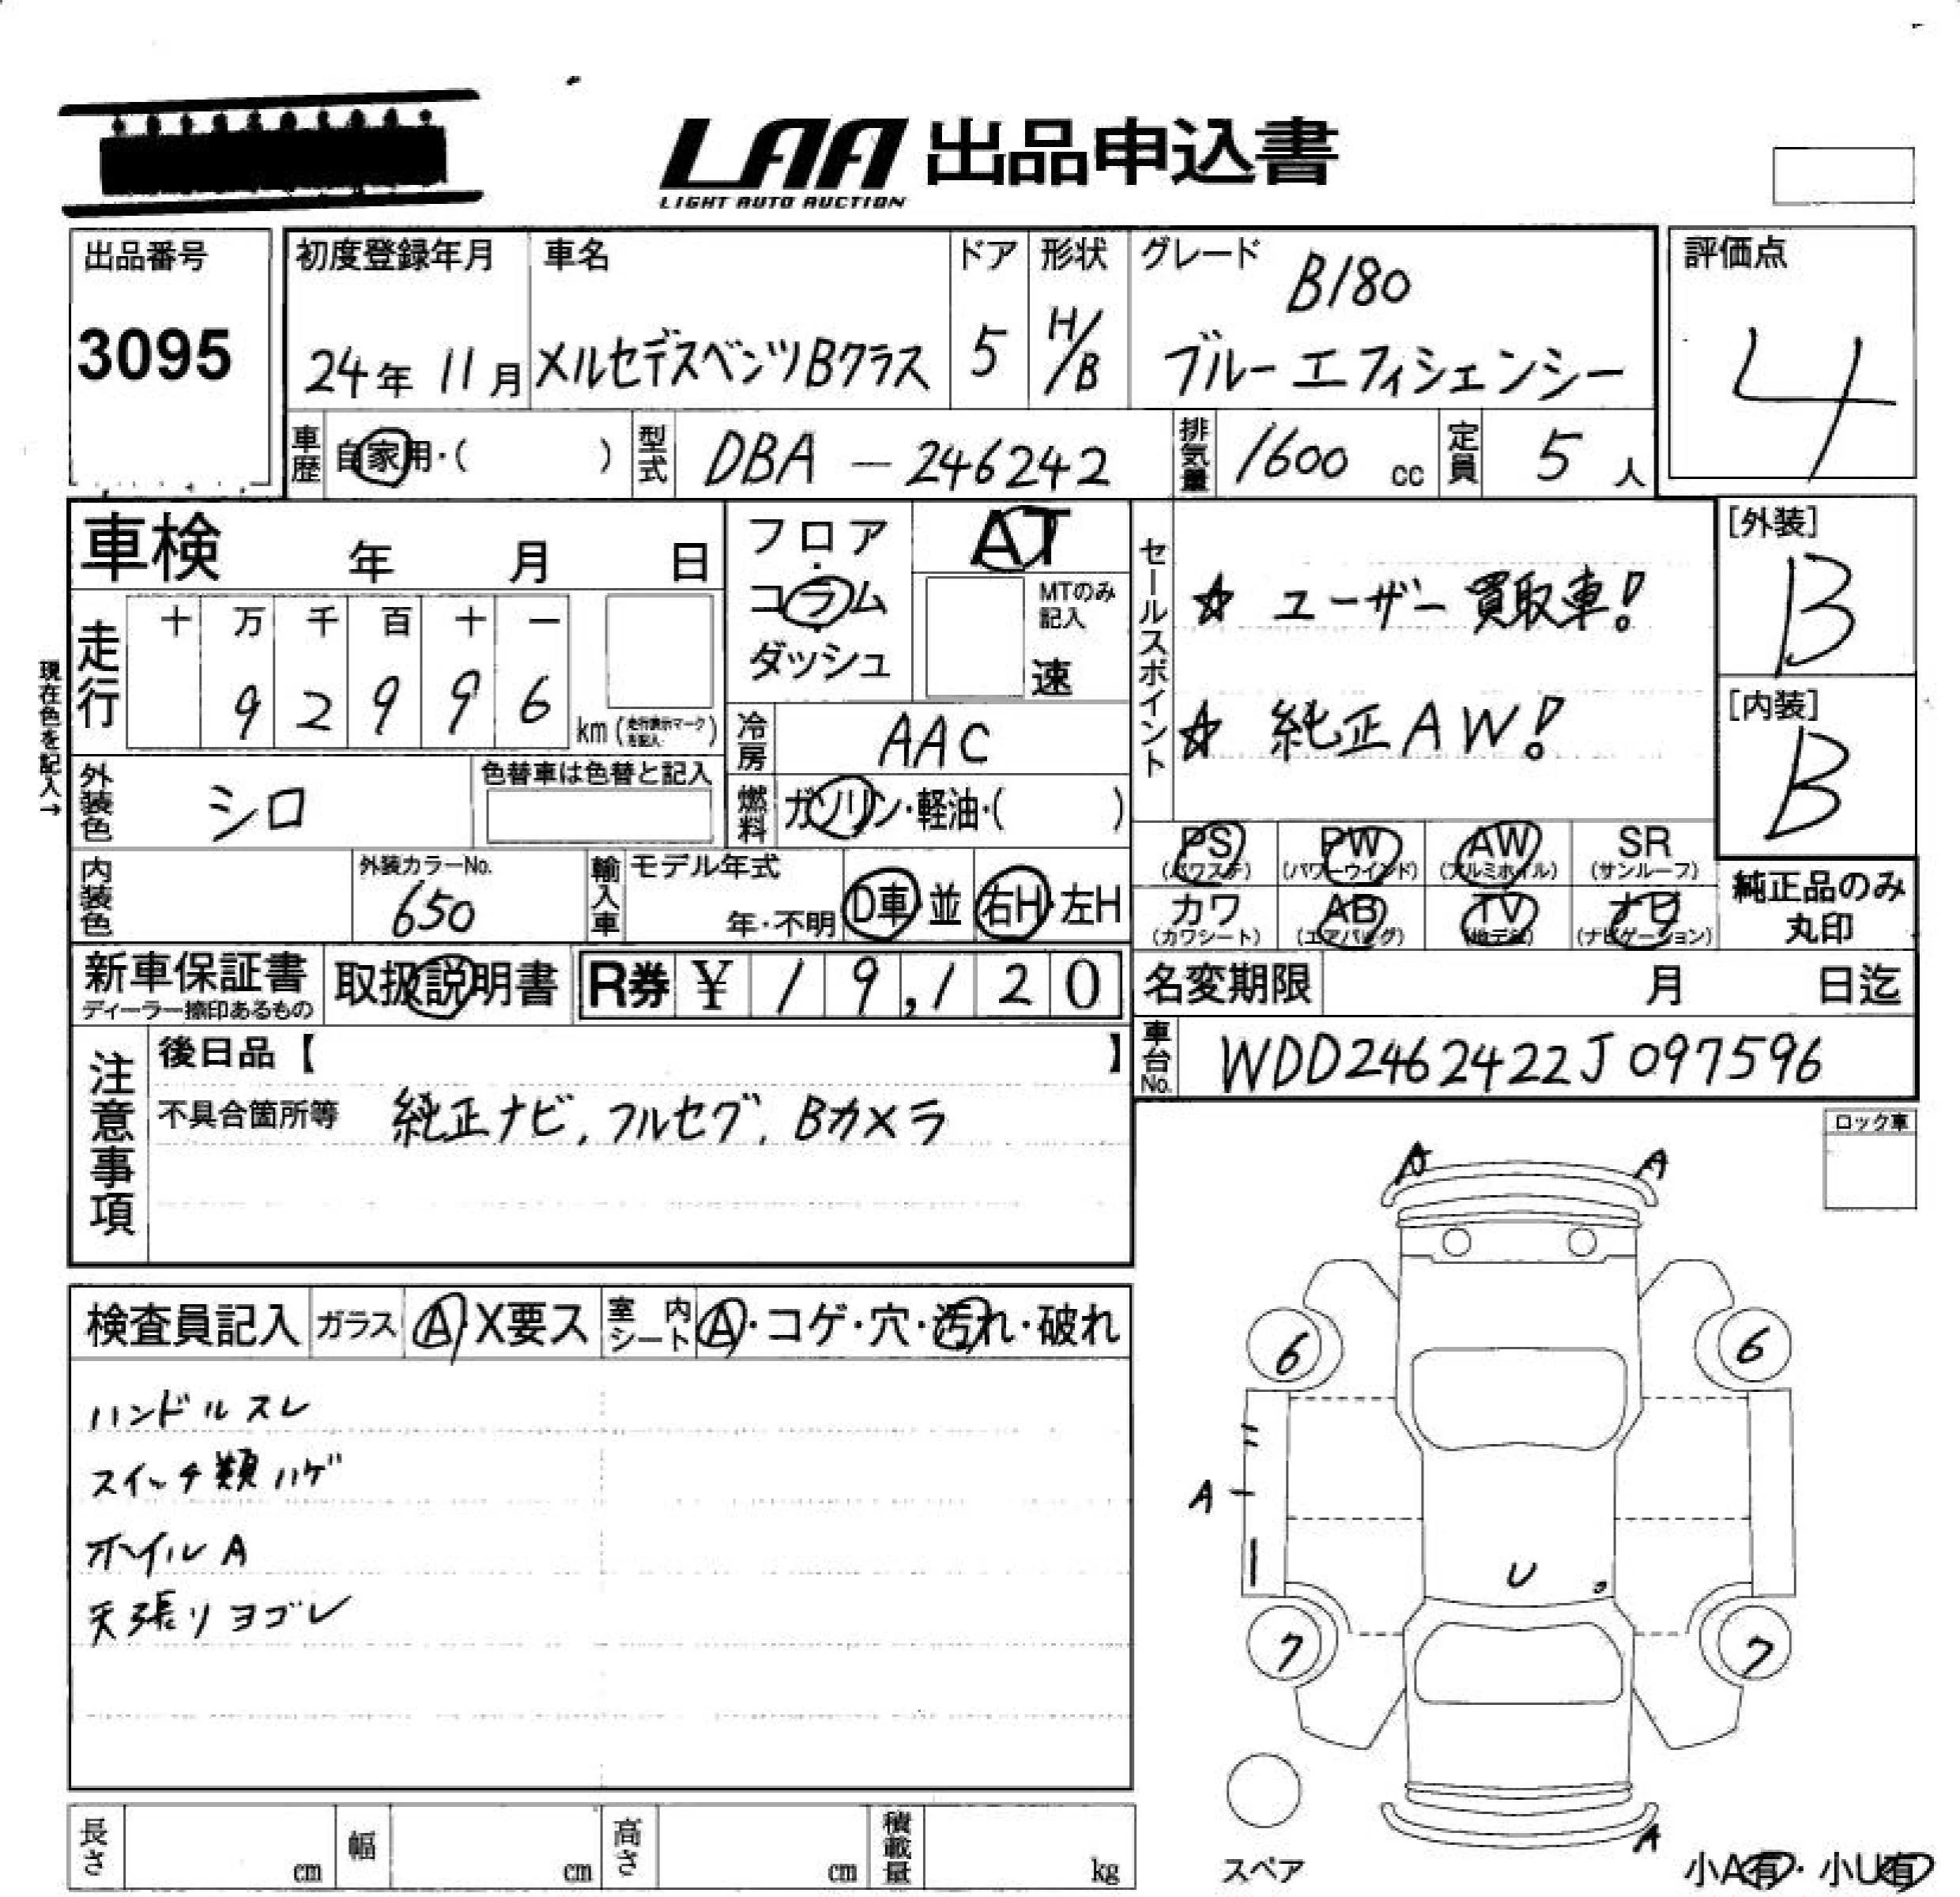 LAA 出品申込書
LIGHT AUTO AUCTION
出品番号
3095
初度登録年月
24年 11月
車名
メルセデスベンツBクラス
ドア
5
形状
H/B
グレード
B180
ブルーエフィシェンシー
評価点
4
車歴 自家用・( )
型式 DBA - 246242
排気量 1600 cc
定員 5 人
車検 年 月 日
フロア・コラム・ダッシュ
AT
MTのみ記入
速
セールスポイント
☆ ユーザー買取車!
☆ 純正AW!
[外装]
B
[内装]
B
現在色を記入→
走行
十 万 千 百 十 一
9 2 9 9 6 km (走行表示マークを記入)
冷房 AAC
燃料 ガソリン・軽油・( )
外装色 シロ
色替車は色替と記入
内装色
外装カラーNo.
650
輸入車 モデル年式
年・不明 D車・並 右H・左H
PS (パワステ)
PW (パワーウインド)
AW (アルミホイル)
SR (サンルーフ)
カワ (カワシート)
AB (エアバッグ)
TV (地デジ)
ナビ (ナビゲーション)
純正品のみ丸印
新車保証書
ディーラー捺印あるもの
取扱説明書
R券 ¥ 19,120
名変期限 月 日迄
車台No. WDD2462422J097596
注意事項
後日品【 】
不具合箇所等 純正ナビ, フルセグ, Bカメラ
ロック車
検査員記入 ガラス A・X要ス 室内シート A・コゲ・穴・汚れ・破れ
ハンドルスレ
スイッチ類ハゲ
ホイルA
天張リヨゴレ
A A
6 6
A
U
7 7
A
スペア
小A有・小U有
長さ cm 幅 cm 高さ cm 積載量 kg